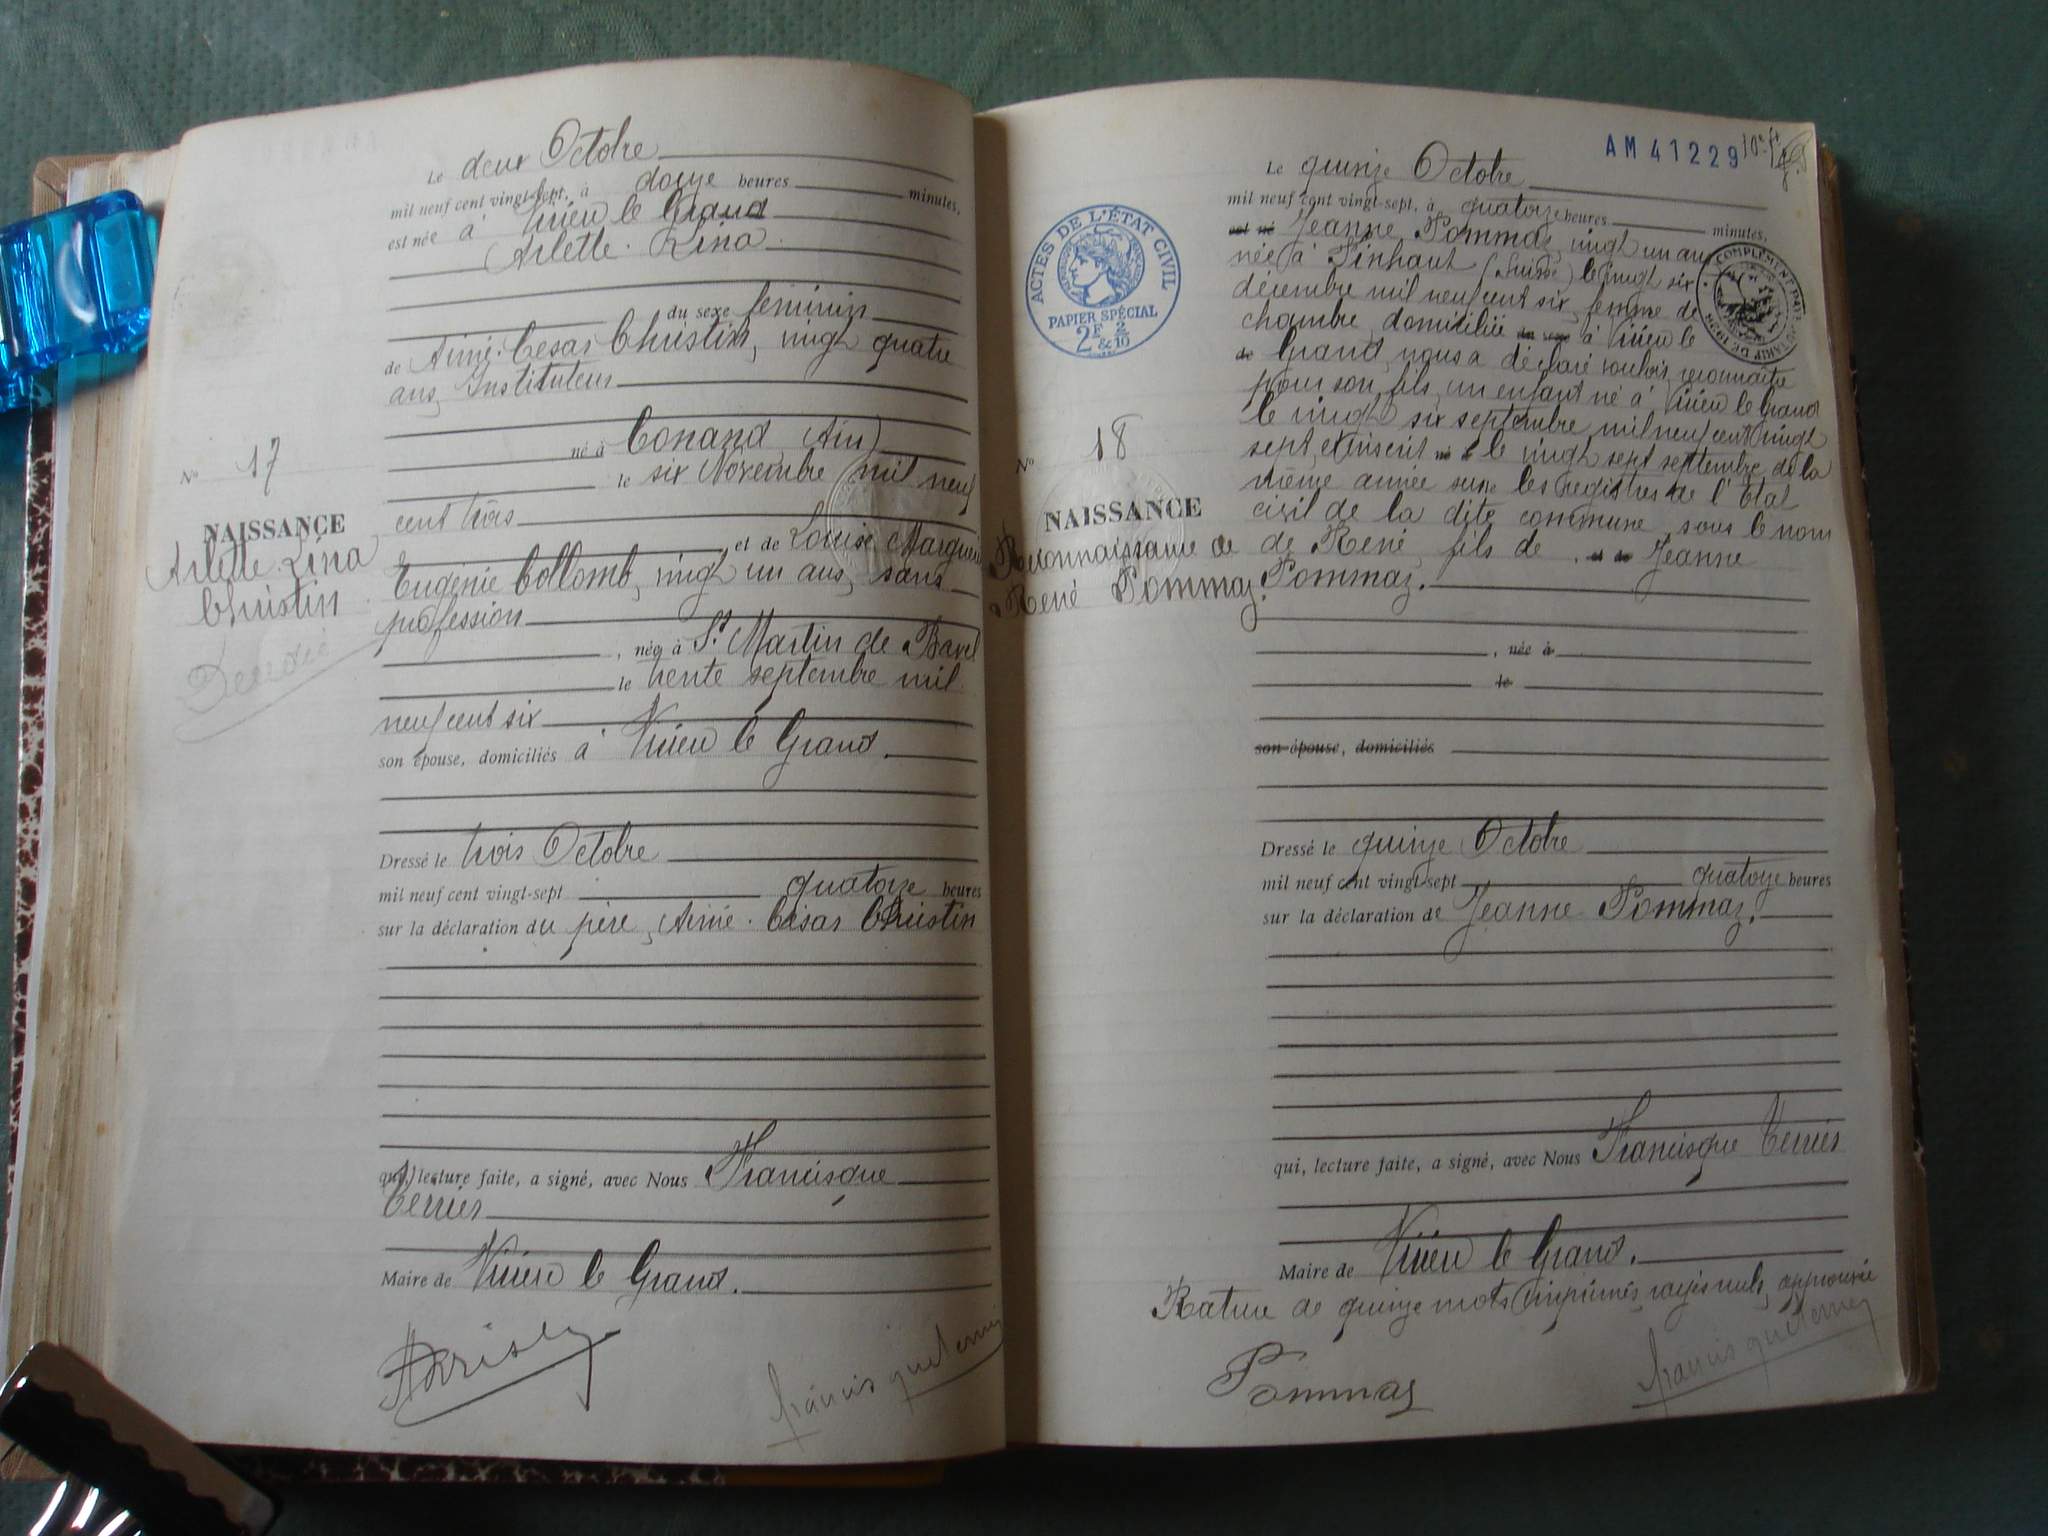 Le deux Octobre
mil neuf cent vingt-sept, à douze heures minutes,
est née à Virieu le Grand
Arlette. Lina
du sexe féminin
de Aimé. César Christin, vingt quatre
ans, Instituteur
né à Conand (Ain)
le six Novembre mil neuf
cent trois
et de Louise Marguerite
Eugénie Collomb, vingt un ans, sans
profession
, née à St Martin de Bavel
le trente septembre mil
neuf cent six
son épouse, domiciliés à Virieu le Grand.
Dressé le trois Octobre
mil neuf cent vingt-sept quatorze heures
sur la déclaration du père, Aimé. César Christin
qui, lecture faite, a signé, avec Nous Francisque
Terrier
Maire de Virieu le Grand.
francisque terrier
N° 17
NAISSANCE
Arlette. Lina
Christin
AM 41229
Le quinze Octobre
mil neuf cent vingt-sept, à quatorze heures minutes,
est né Jeanne Pommaz, vingt un ans
née à Finhaut (Suisse) le vingt six
décembre mil neuf cent six, femme de
chambre, domiciliée du sexe à Virieu le
de Grand, nous a déclaré vouloir reconnaître
pour son fils, un enfant né à Virieu le Grand
le vingt six septembre mil neuf cent vingt
sept, et inscrit né à le vingt sept septembre de la
même année sur les registres de l'Etat
civil de la dite commune, sous le nom
de René, fils de , et de Jeanne
Pommaz.
, née à
le
son épouse, domiciliés
Dressé le quinze Octobre
mil neuf cent vingt-sept quatorze heures
sur la déclaration de Jeanne Pommaz.
qui, lecture faite, a signé, avec Nous Francisque Terrier
Maire de Virieu le Grand.
Rature de quinze mots imprimés, rayés nuls, approuvée
Pommaz
francisque terrier
ACTES DE L'ÉTAT CIVIL
PAPIER SPÉCIAL
2F & 2/10
COMPLÉMENT
N° 18
NAISSANCE
Reconnaissance de
René Pommaz.